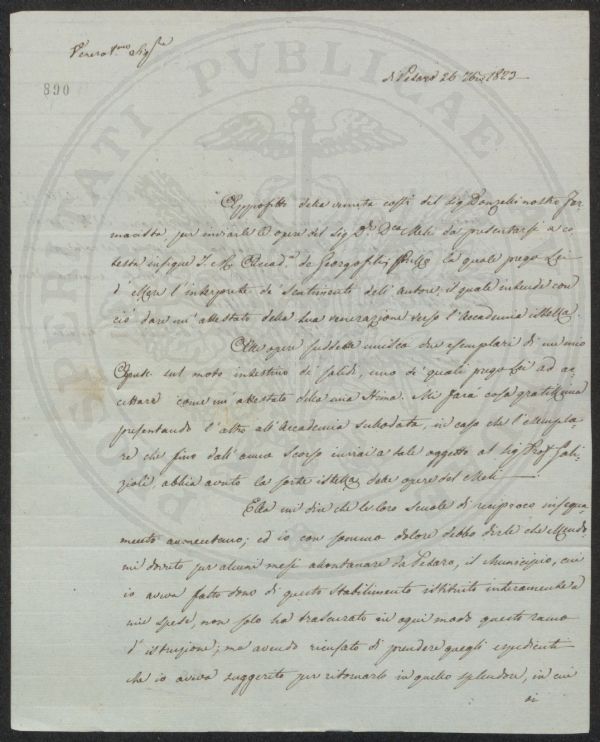 Venerat.mo Sig.re
890
di Pesaro 26 1823
PROSPERITATI PUBLICAE
Approfitto della venuta costì del Sig Donzelli nostro Far-
macista per inviarle opere del Sig D.r Dco. Meli da presentarsi a co-
testa insigne I. e R. Accad.a de Georgofili presso la quale prego Lei
d'essere l'interprete de sentimenti dell'autore, il quale intende con
ciò dare un'attestato della sua venerazione verso l'Accademia istessa.
Alle opere suddette unisco due esemplari di un mio
Opusc. sul moto intestino di solidi, uno de' quali prego Lei ad ac-
cettare come un'attestato della mia stima. Mi farà cosa gratissima
presentando l'altro all'Accademia sulodata, in caso che l'esempla-
re che fino dall'anno scorso inviai a tale oggetto al Sig Prof. Gali-
zioli, abbia avuto la sorte istessa delle opere del Meli
Ella mi dice che le loro Scuole di reciproco insegna-
mento aumentano; ed io con sommo dolore debbo dirle che essendo-
mi dovuto per alcuni mesi allontanare da Pesaro, il Municipio, cui
io aveva fatto dono di questo Stabilimento istituito interamente a
mie spese, non solo ha trascurato in ogni modo questo ramo
d'istruzione; ma avendo ricusato di prendere quegli espedienti
che io aveva suggerito per ritornarlo in quello splendore, in cui